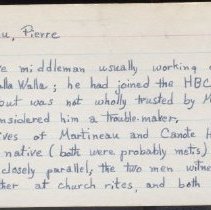 au, Pierre
e middleman usually working
alla Walla; he had joined the HBC
but was not wholly trusted by M
nsidered him a trouble-maker,
ves of Martineau and Canote H
native (both were probably metis)
closely parallel, the two men witne
ther at church rites, and both